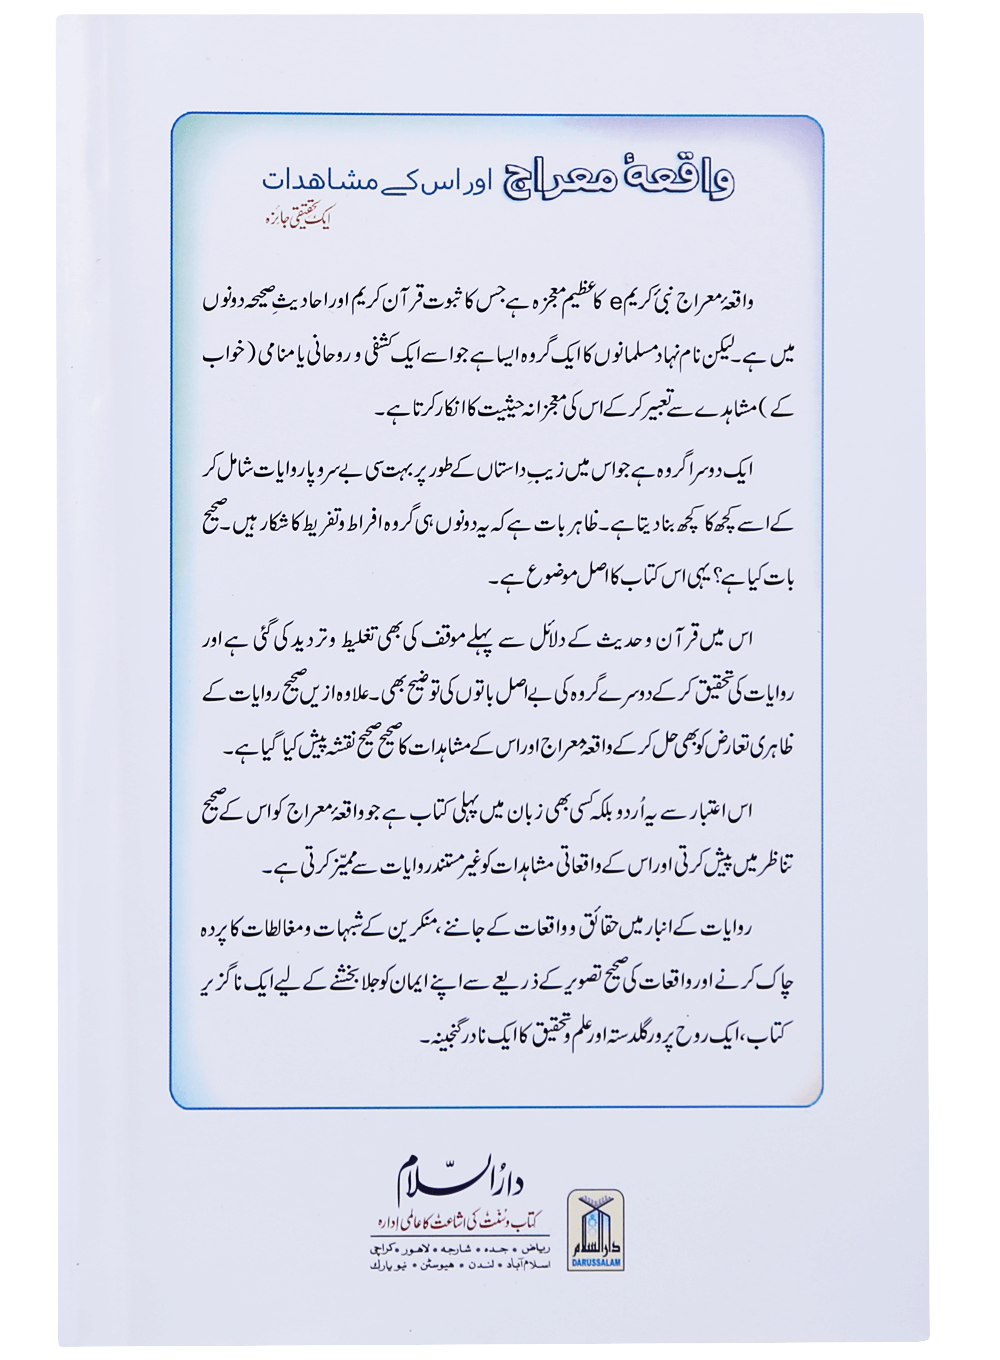 واقعۂ معراج اور اس کے مشاهدات
ایک تحقیقی جائزہ
واقعۂ معراج نبیٔ کریمe کا عظیم معجزہ ہے جس کا ثبوت قرآن کریم اور احادیثِ صحیحہ دونوں
میں ہے۔ لیکن نام نہاد مسلمانوں کا ایک گروہ ایسا ہے جو اسے ایک کشفی و روحانی یا منامی (خواب
کے) مشاہدے سے تعبیر کر کے اس کی معجزانہ حیثیت کا انکار کرتا ہے۔
ایک دوسرا گروہ ہے جو اس میں زیبِ داستاں کے طور پر بہت سی بے سروپا روایات شامل کر
کے اسے کچھ کا کچھ بنا دیتا ہے۔ ظاہر بات ہے کہ یہ دونوں ہی گروہ افراط و تفریط کا شکار ہیں۔ صحیح
بات کیا ہے؟ یہی اس کتاب کا اصل موضوع ہے۔
اس میں قرآن و حدیث کے دلائل سے پہلے موقف کی بھی تغلیط و تردید کی گئی ہے اور
روایات کی تحقیق کر کے دوسرے گروہ کی بے اصل باتوں کی توضیح بھی۔ علاوہ ازیں صحیح روایات کے
ظاہری تعارض کو بھی حل کر کے واقعۂ معراج اور اس کے مشاہدات کا صحیح صحیح نقشہ پیش کیا گیا ہے۔
اس اعتبار سے یہ اُردو بلکہ کسی بھی زبان میں پہلی کتاب ہے جو واقعۂ معراج کو اس کے صحیح
تناظر میں پیش کرتی اور اس کے واقعاتی مشاہدات کو غیر مستند روایات سے ممیّز کرتی ہے۔
روایات کے انبار میں حقائق و واقعات کے جاننے، منکرین کے شبہات و مغالطات کا پردہ
چاک کرنے اور واقعات کی صحیح تصویر کے ذریعے سے اپنے ایمان کو جلا بخشنے کے لیے ایک ناگزیر
کتاب، ایک روح پرور گلدستہ اور علم و تحقیق کا ایک نادر گنجینہ۔
دارُالسّلام
کتاب و سُنّت کی اشاعت کا عالمی اِدارہ
ریاض • جدہ • شارجہ • لاهور • کراچی
اسلام آباد • لندن • هیوسٹن • نیو یارك
دارالسلام
DARUSSALAM